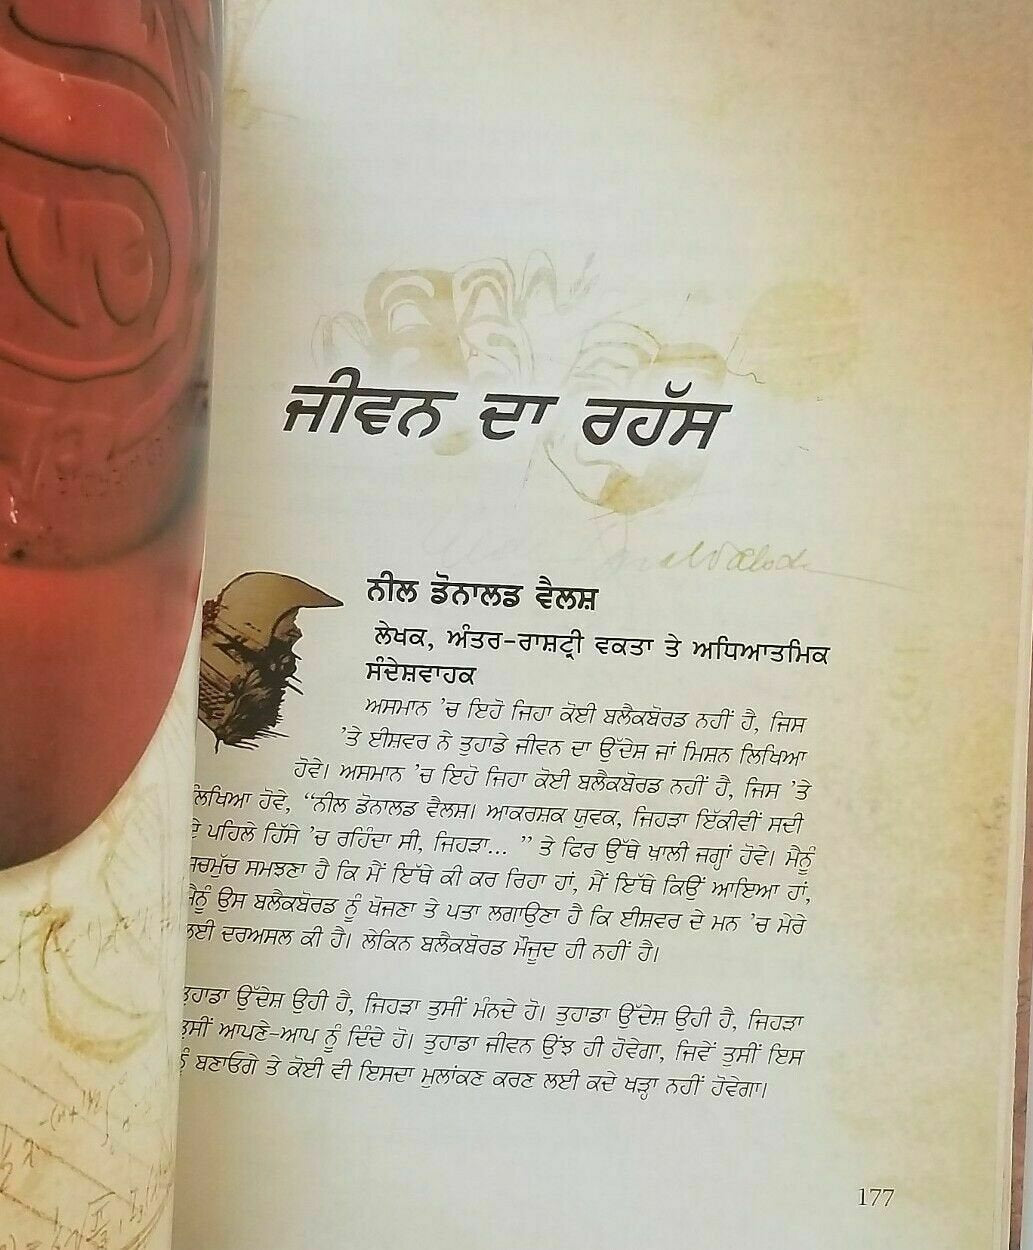 ਜੀਵਨ ਦਾ ਰਹੱਸ
ਨੀਲ ਡੋਨਾਲਡ ਵੈਲਸ਼
ਲੇਖਕ, ਅੰਤਰ-ਰਾਸ਼ਟ੍ਰੀ ਵਕਤਾ ਤੇ ਅਧਿਆਤਮਿਕ
ਸੰਦੇਸ਼ਵਾਹਕ
ਅਸਮਾਨ ’ਚ ਇਹੋ ਜਿਹਾ ਕੋਈ ਬਲੈਕਬੋਰਡ ਨਹੀਂ ਹੈ, ਜਿਸ
’ਤੇ ਈਸ਼ਵਰ ਨੇ ਤੁਹਾਡੇ ਜੀਵਨ ਦਾ ਉੱਦੇਸ਼ ਜਾਂ ਮਿਸ਼ਨ ਲਿਖਿਆ
ਹੋਵੇ। ਅਸਮਾਨ ’ਚ ਇਹੋ ਜਿਹਾ ਕੋਈ ਬਲੈਕਬੋਰਡ ਨਹੀਂ ਹੈ, ਜਿਸ ’ਤੇ
ਲਿਖਿਆ ਹੋਵੇ, “ਨੀਲ ਡੋਨਾਲਡ ਵੈਲਸ਼। ਆਕਰਸ਼ਕ ਯੁਵਕ, ਜਿਹੜਾ ਇੱਕੀਵੀਂ ਸਦੀ
ਦੇ ਪਹਿਲੇ ਹਿੱਸੇ ’ਚ ਰਹਿੰਦਾ ਸੀ, ਜਿਹੜਾ... ” ਤੇ ਫਿਰ ਉੱਥੇ ਖ਼ਾਲੀ ਜਗ੍ਹਾਂ ਹੋਵੇ। ਮੈਨੂੰ
ਸਚਮੁੱਚ ਸਮਝਣਾ ਹੈ ਕਿ ਮੈਂ ਇੱਥੇ ਕੀ ਕਰ ਰਿਹਾ ਹਾਂ, ਮੈਂ ਇੱਥੇ ਕਿਉਂ ਆਇਆ ਹਾਂ,
ਮੈਨੂੰ ਉਸ ਬਲੈਕਬੋਰਡ ਨੂੰ ਖੋਜਣਾ ਤੇ ਪਤਾ ਲਗਾਉਣਾ ਹੈ ਕਿ ਈਸ਼ਵਰ ਦੇ ਮਨ ’ਚ ਮੇਰੇ
ਲਈ ਦਰਅਸਲ ਕੀ ਹੈ। ਲੇਕਿਨ ਬਲੈਕਬੋਰਡ ਮੌਜੂਦ ਹੀ ਨਹੀਂ ਹੈ।
ਤੁਹਾਡਾ ਉੱਦੇਸ਼ ਉਹੀ ਹੈ, ਜਿਹੜਾ ਤੁਸੀਂ ਮੰਨਦੇ ਹੋ। ਤੁਹਾਡਾ ਉੱਦੇਸ਼ ਉਹੀ ਹੈ, ਜਿਹੜਾ
ਤੁਸੀਂ ਆਪਣੇ-ਆਪ ਨੂੰ ਦਿੰਦੇ ਹੋ। ਤੁਹਾਡਾ ਜੀਵਨ ਉਂਝ ਹੀ ਹੋਵੇਗਾ, ਜਿਵੇਂ ਤੁਸੀਂ ਇਸ
ਨੂੰ ਬਣਾਓਗੇ ਤੇ ਕੋਈ ਵੀ ਇਸਦਾ ਮੁਲਾਂਕਣ ਕਰਣ ਲਈ ਕਦੇ ਖੜ੍ਹਾ ਨਹੀਂ ਹੋਵੇਗਾ।
177